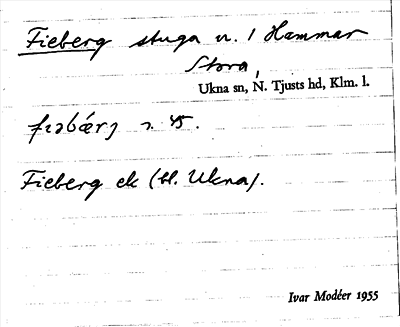 Fieberg stuga u. / Hammar
Stora,
Ukna sn, N. Tjusts hd, Klm. l.
Fieberg ek (bl. Ukna).
Ivar Modéer 1955